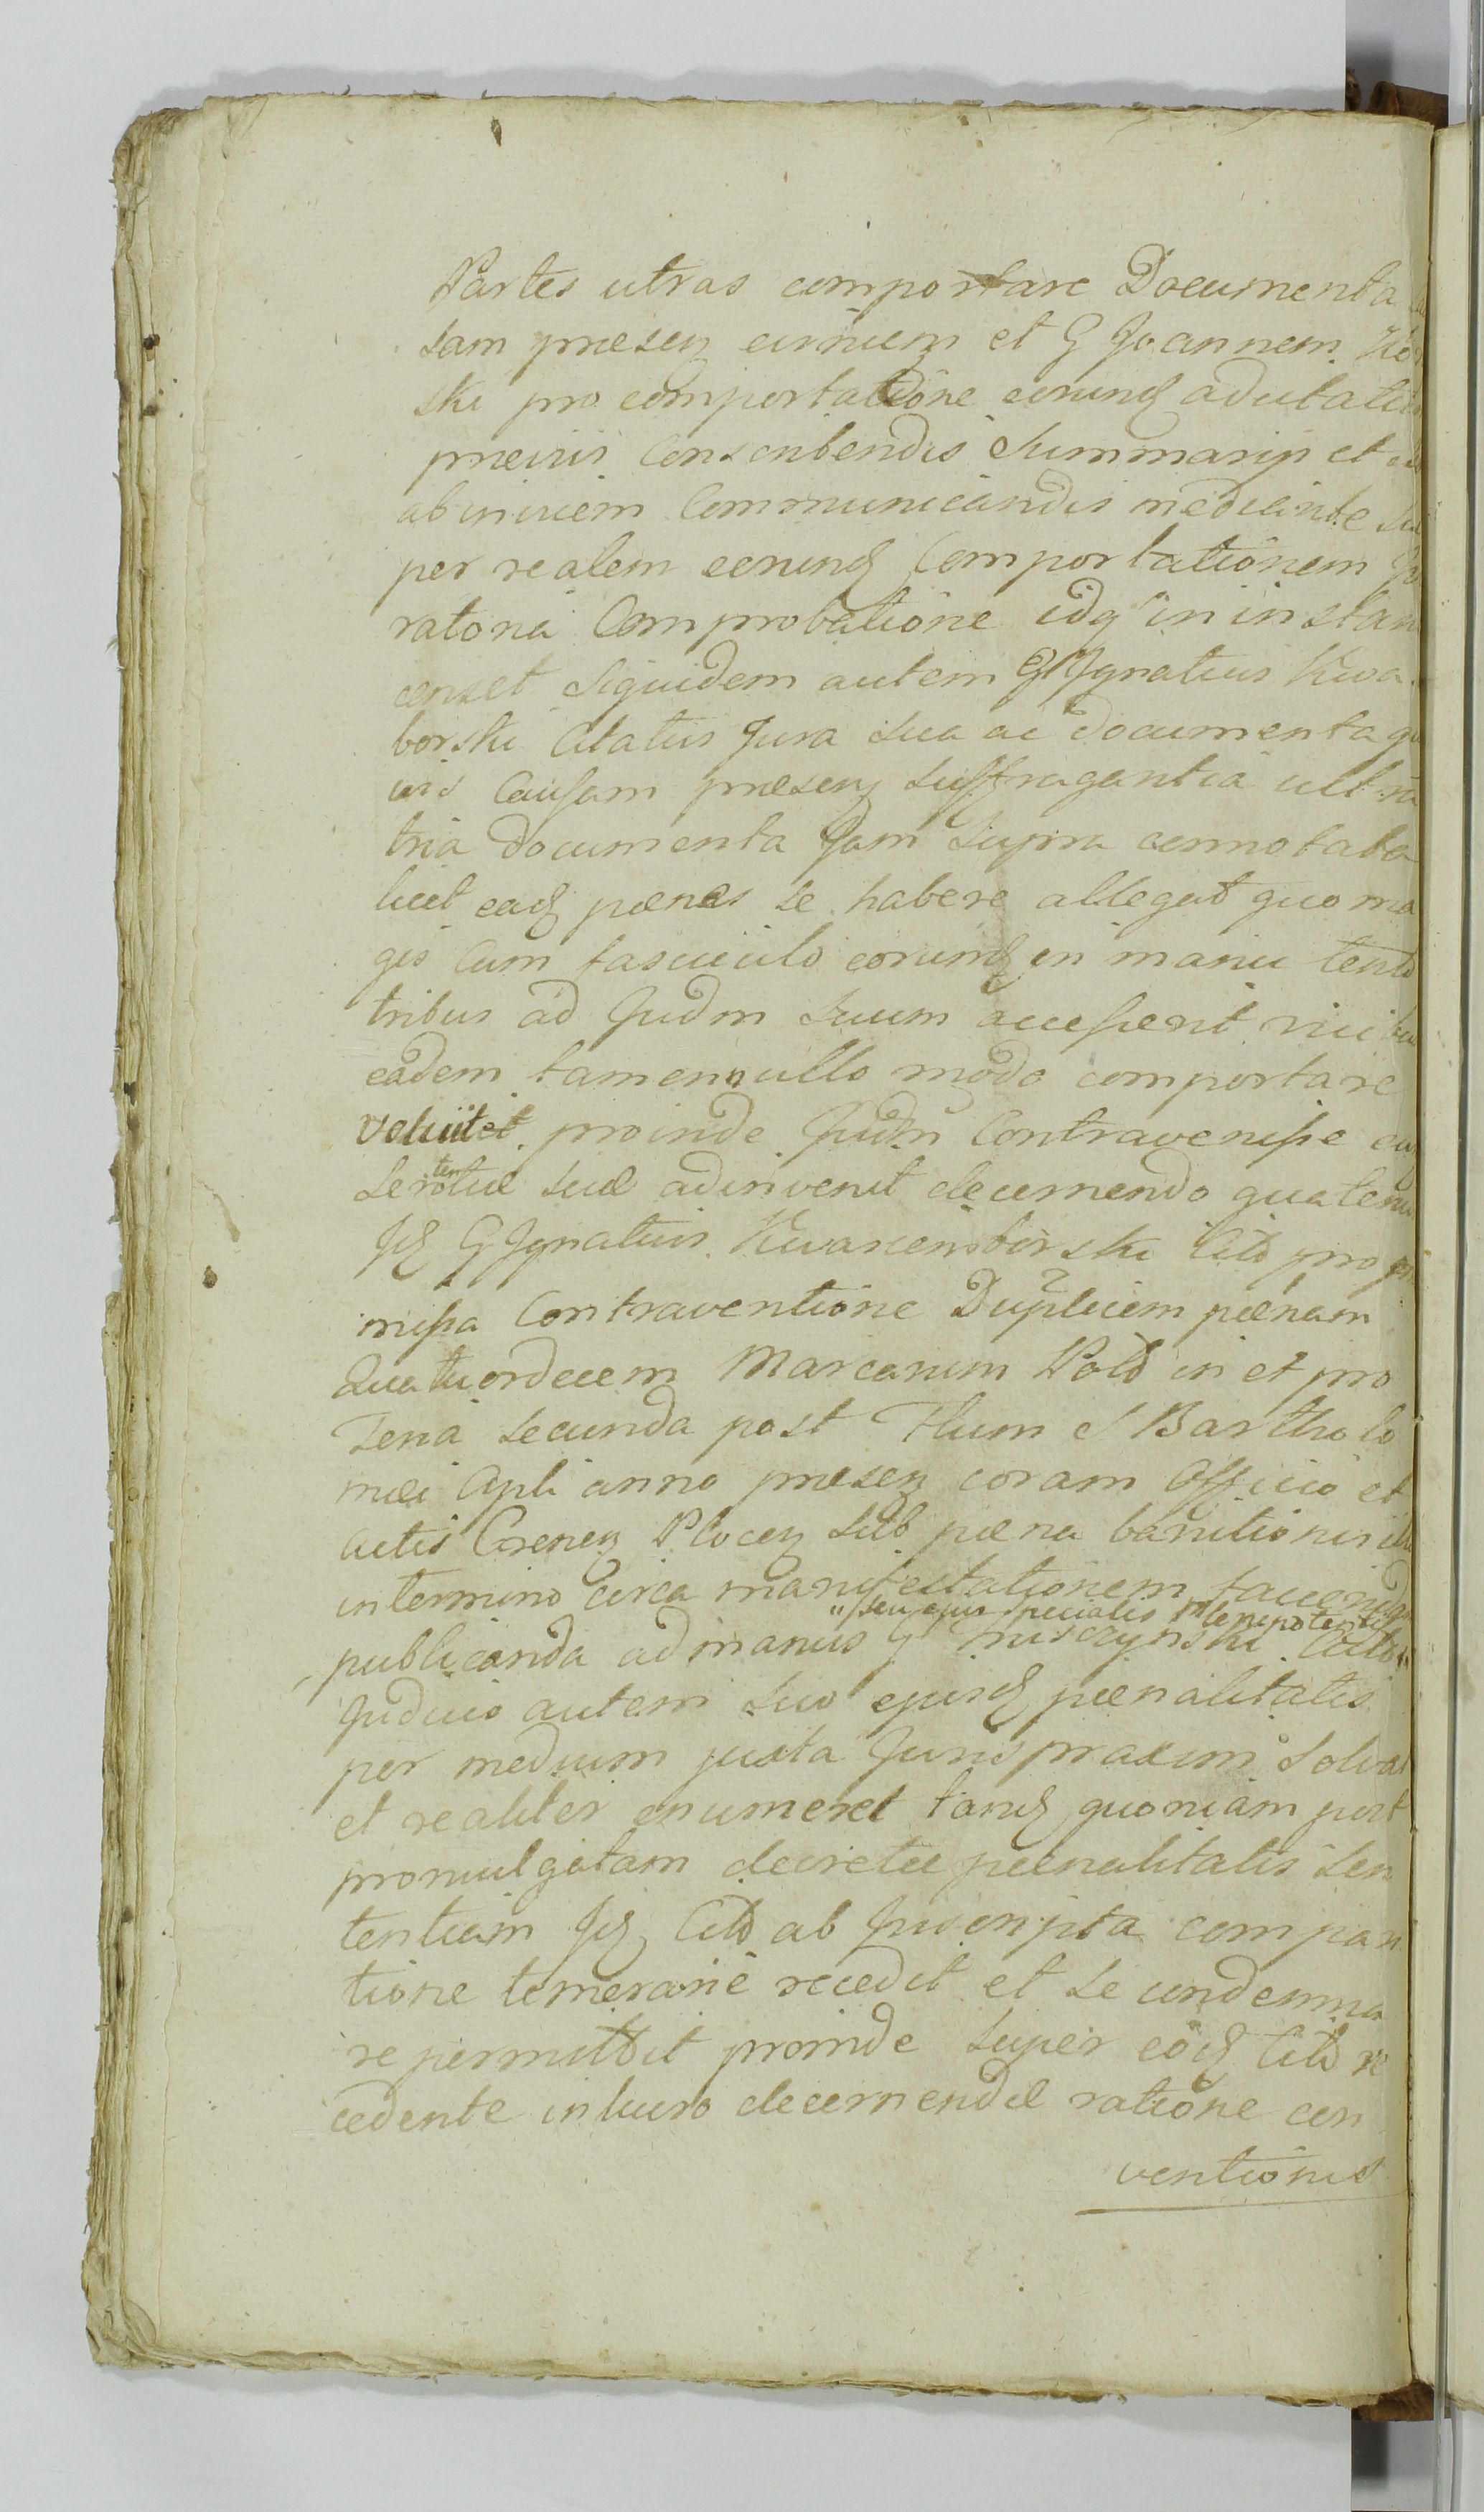 Partes utras comportare Documenta
sam præsen eamen et G Joannem
ski pro comportatione eorund
præviis Conscribendis Summariis et
abinvicem Communicandis mediante
per realem eorund Comportationem
ratoria Comprobatione idq in instan
censet Siquidem autem G Ignatius Kwa
borski Citatus Jura sua ac documenta
Causam præsen suffragantia ultra
tria documenta Jam Supra connotata
licet ead pænes se habere allegat quo ma
gis Cum fasciculo eorund in manu tento
tribus ad Judm Suum accesserit
eadem tamen nullo modo comportare
voluit proinde Judm Contravenisse
Sententiæ suæ adinvenit decernendo quatenus
Jd G Ignatius Kwasiemborski Citt pro
missa Contraventione Duplicem pænam
Quatuordecem Marcarum Pold in et pro
Feria Secunda post Ftum S Bartholo
mæi Apli anno præsen coram Officio et
Actis Cren Plocen Sub pæna banitionis
in termino circa manifestationem
publicanda ad manus G " seu ejus specialis plenipotentis
Judicio autem suo ejusd pænalitatis
per medium juxta Juris praxim Solvat
et realiter enumeret tand quoniam post
promulgatam decretæ pænalitatis Sen
tentiam Jd Citt ab Inscripta compari
tione temerarie recedit et se condemna
re permittit proinde Super eod Citt re
cedente in lucro decernendæ ratione con
ventionis